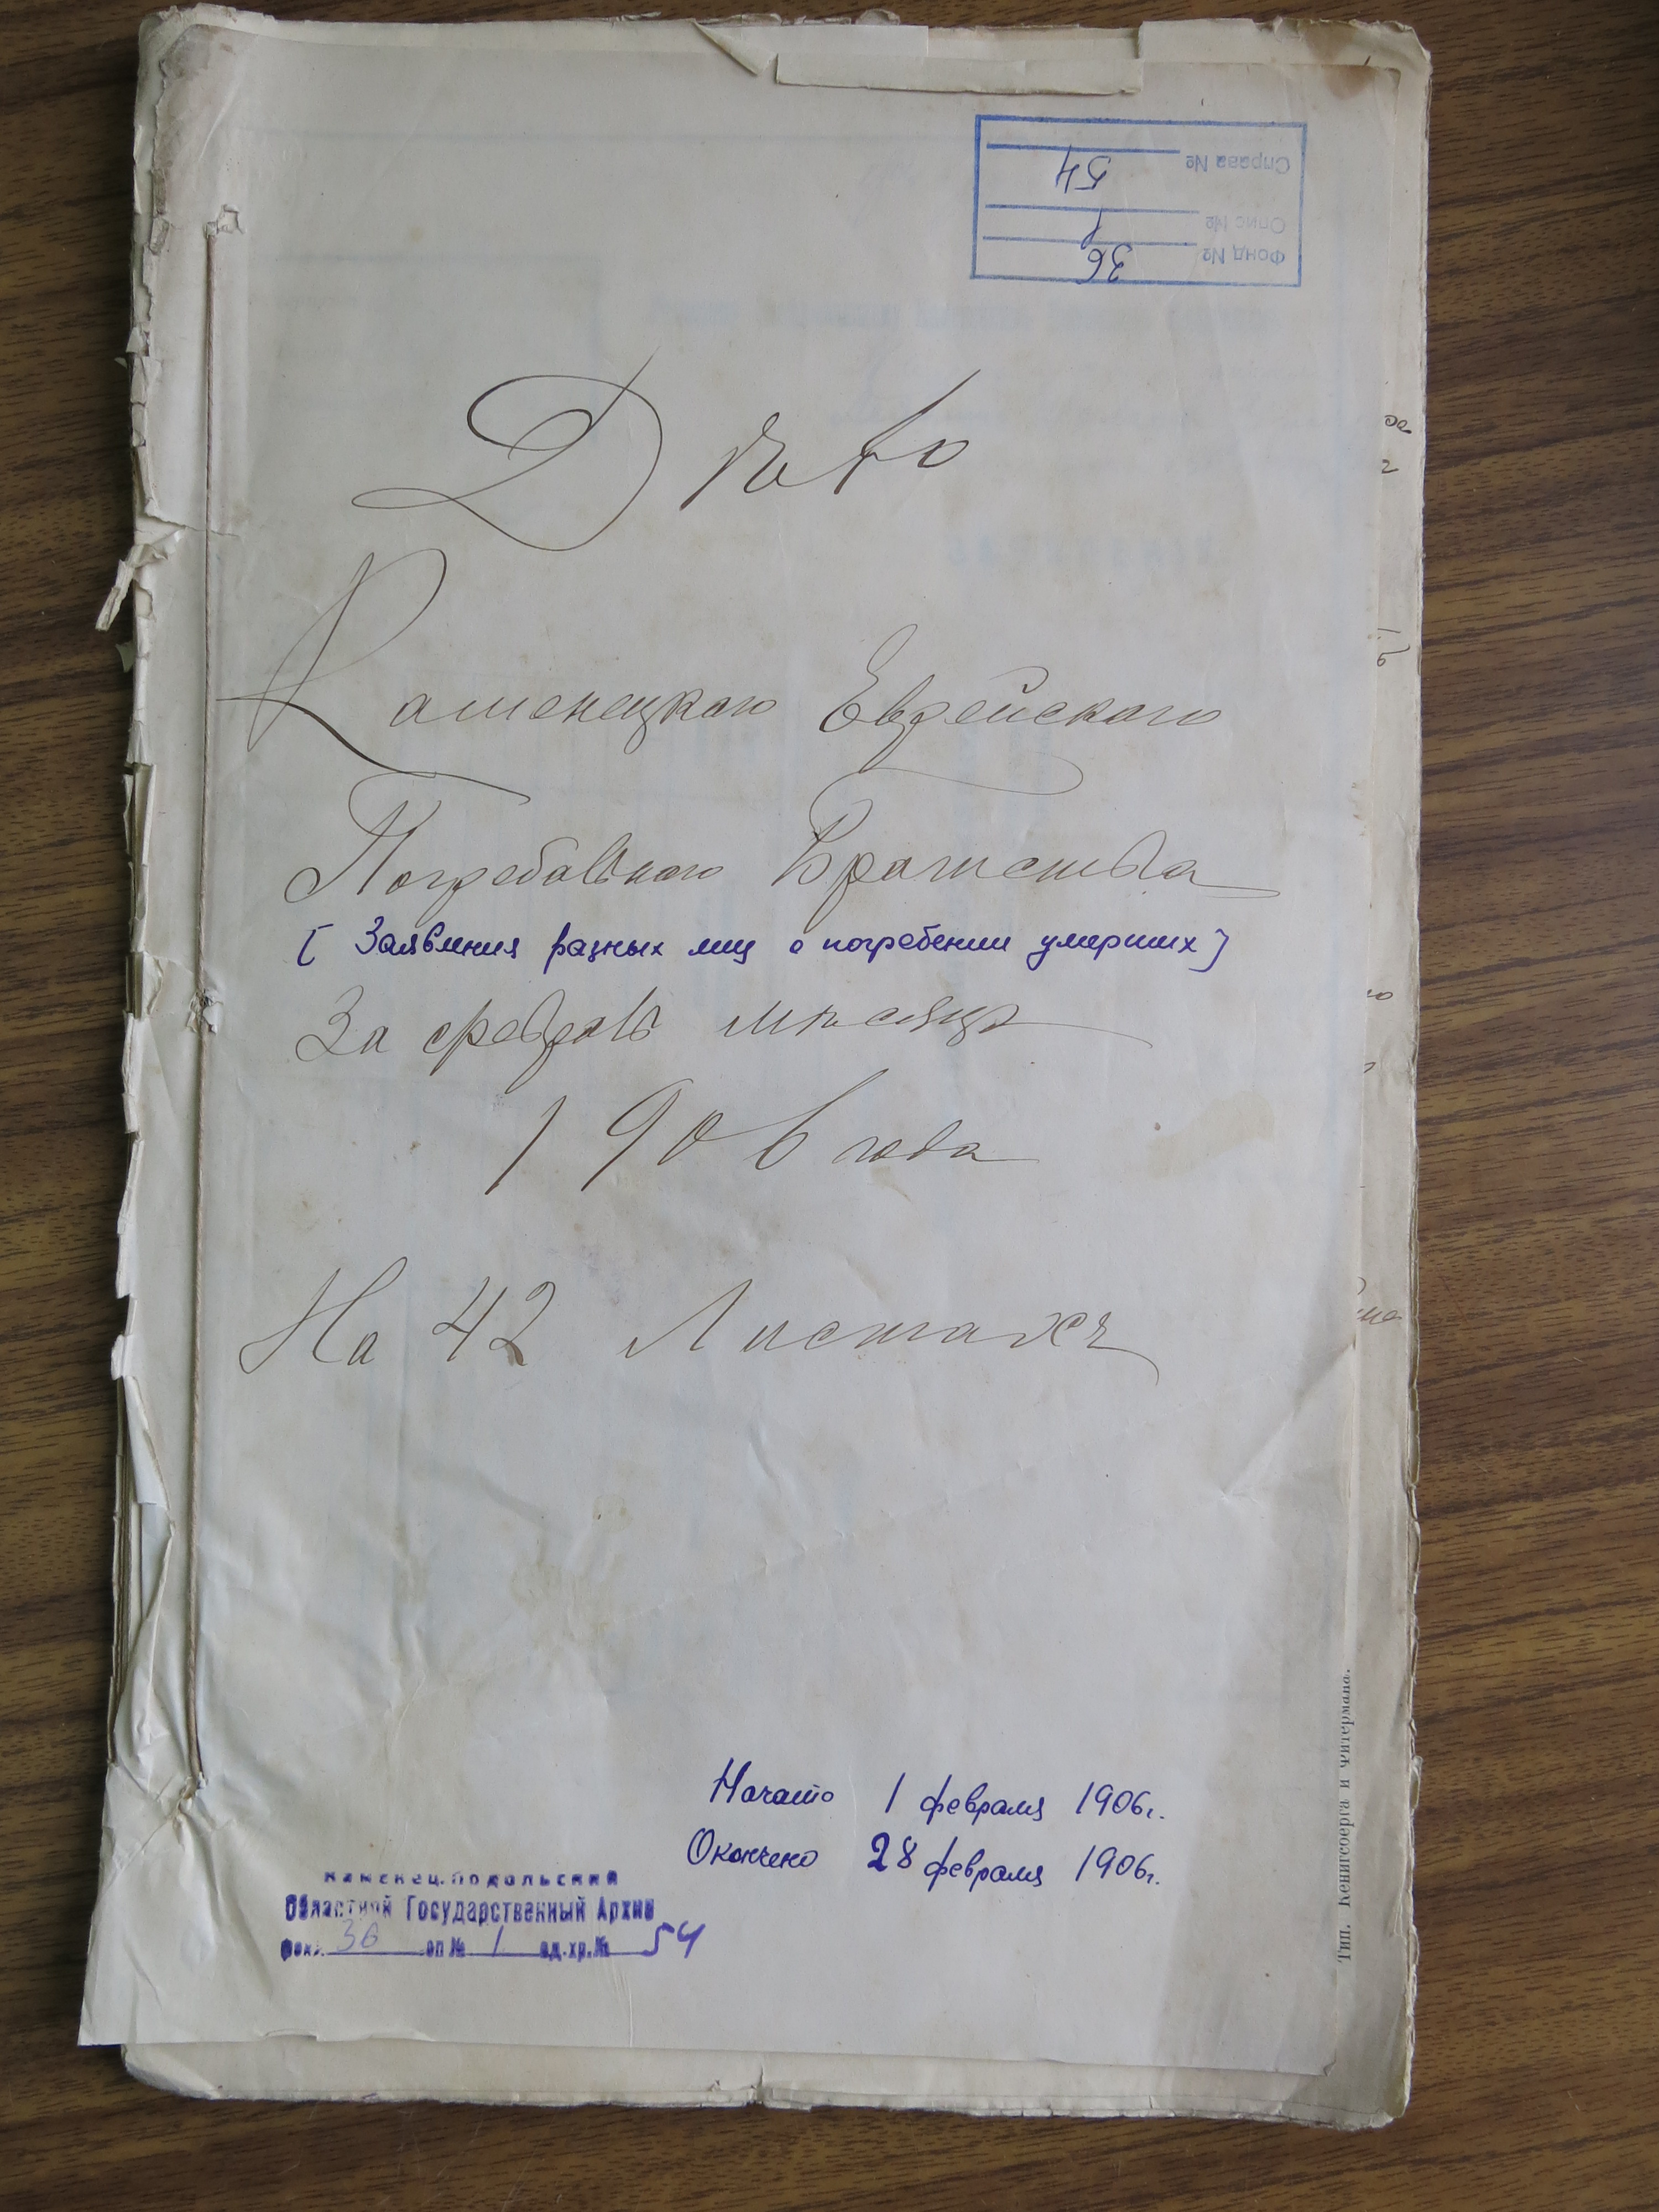 Справа № 54
Опис № 1
Фонд № 36
Дѣло
Каменецкаго Еврейскаго
Погребальнаго Братства
[Заявления разных лиц о погребении умерших]
За февраль мѣсяцъ
1906 года
На 42 Листахъ
Начато 1 февраля 1906г.
Окончено 28 февраля 1906г.
Каменец-Подольский
Областной Государственный Архив
фонд 36 оп № 1 ед.хр.№ 54
Тип. Кенигсберга и Фитермана.